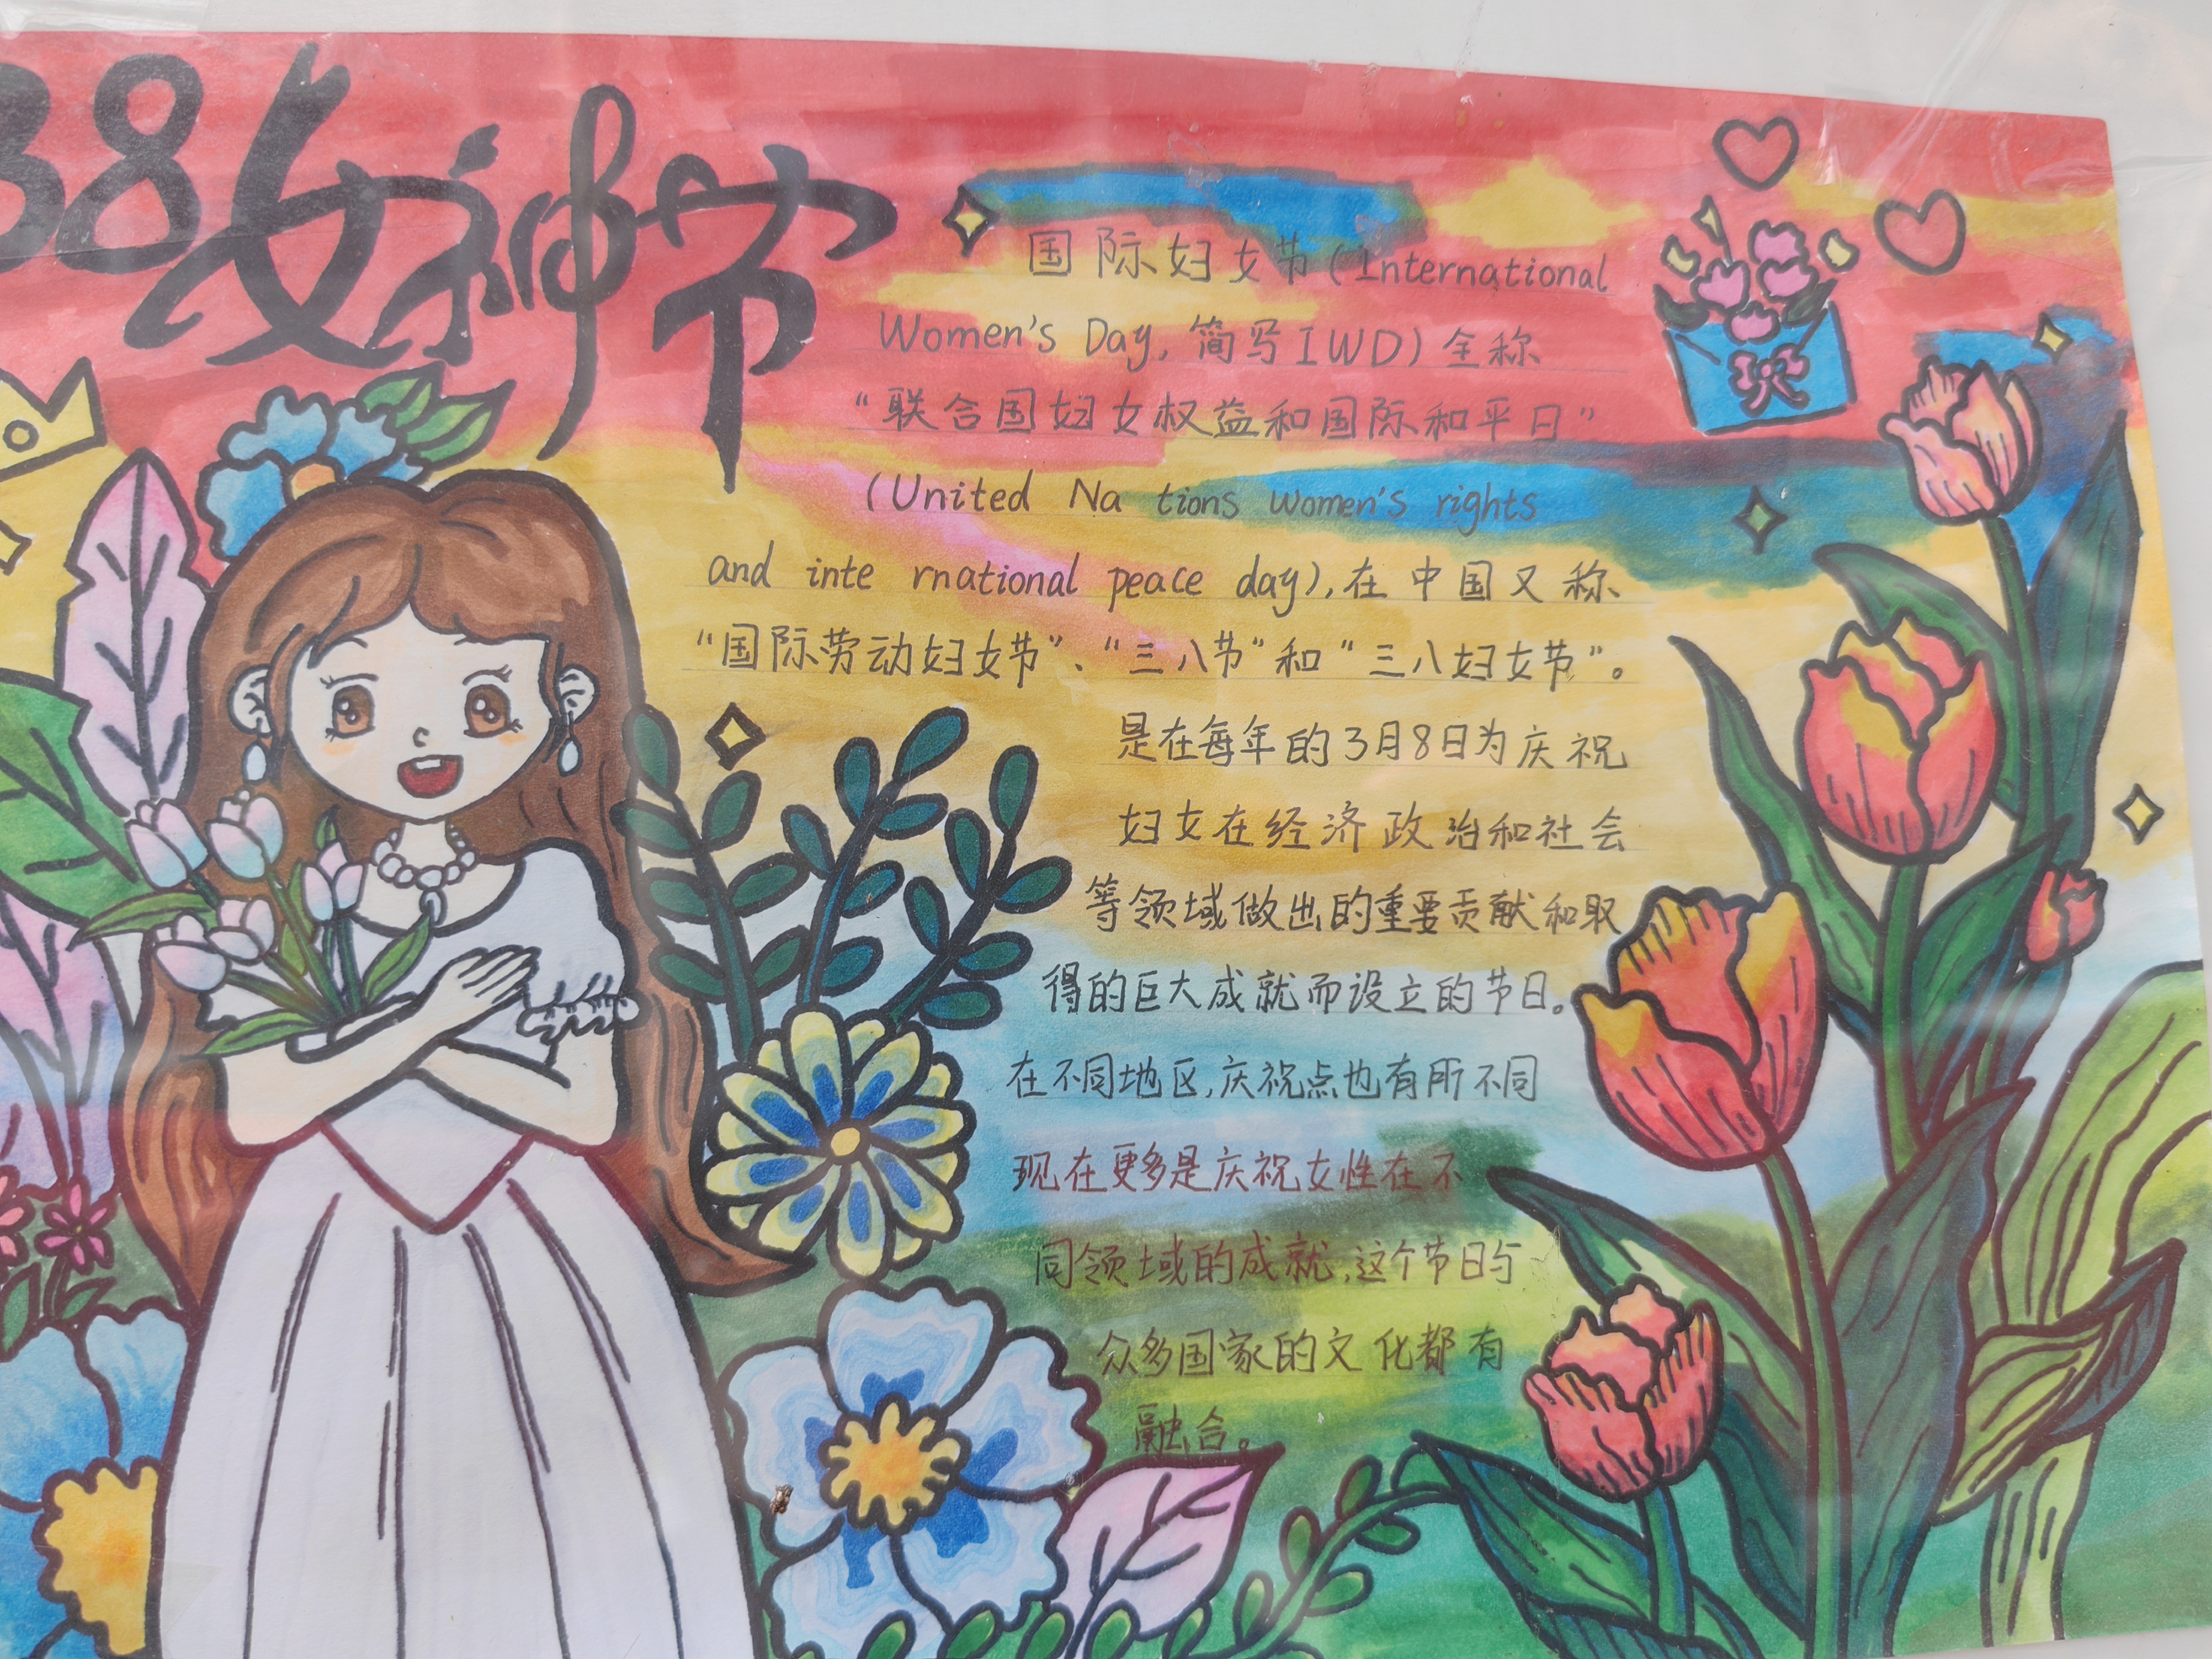 38女神节
国际妇女节(International
Women's Day, 简写IWD)全称
“联合国妇女权益和国际和平日”
(United Na tions women's rights
and inte rnational peace day),在中国又称
“国际劳动妇女节”、“三八节”和“三八妇女节”。
是在每年的3月8日为庆祝
妇女在经济政治和社会
等领域做出的重要贡献和取
得的巨大成就而设立的节日。
在不同地区,庆祝点也有所不同
现在更多是庆祝女性在不
同领域的成就,这个节日与
众多国家的文化都有
融合。